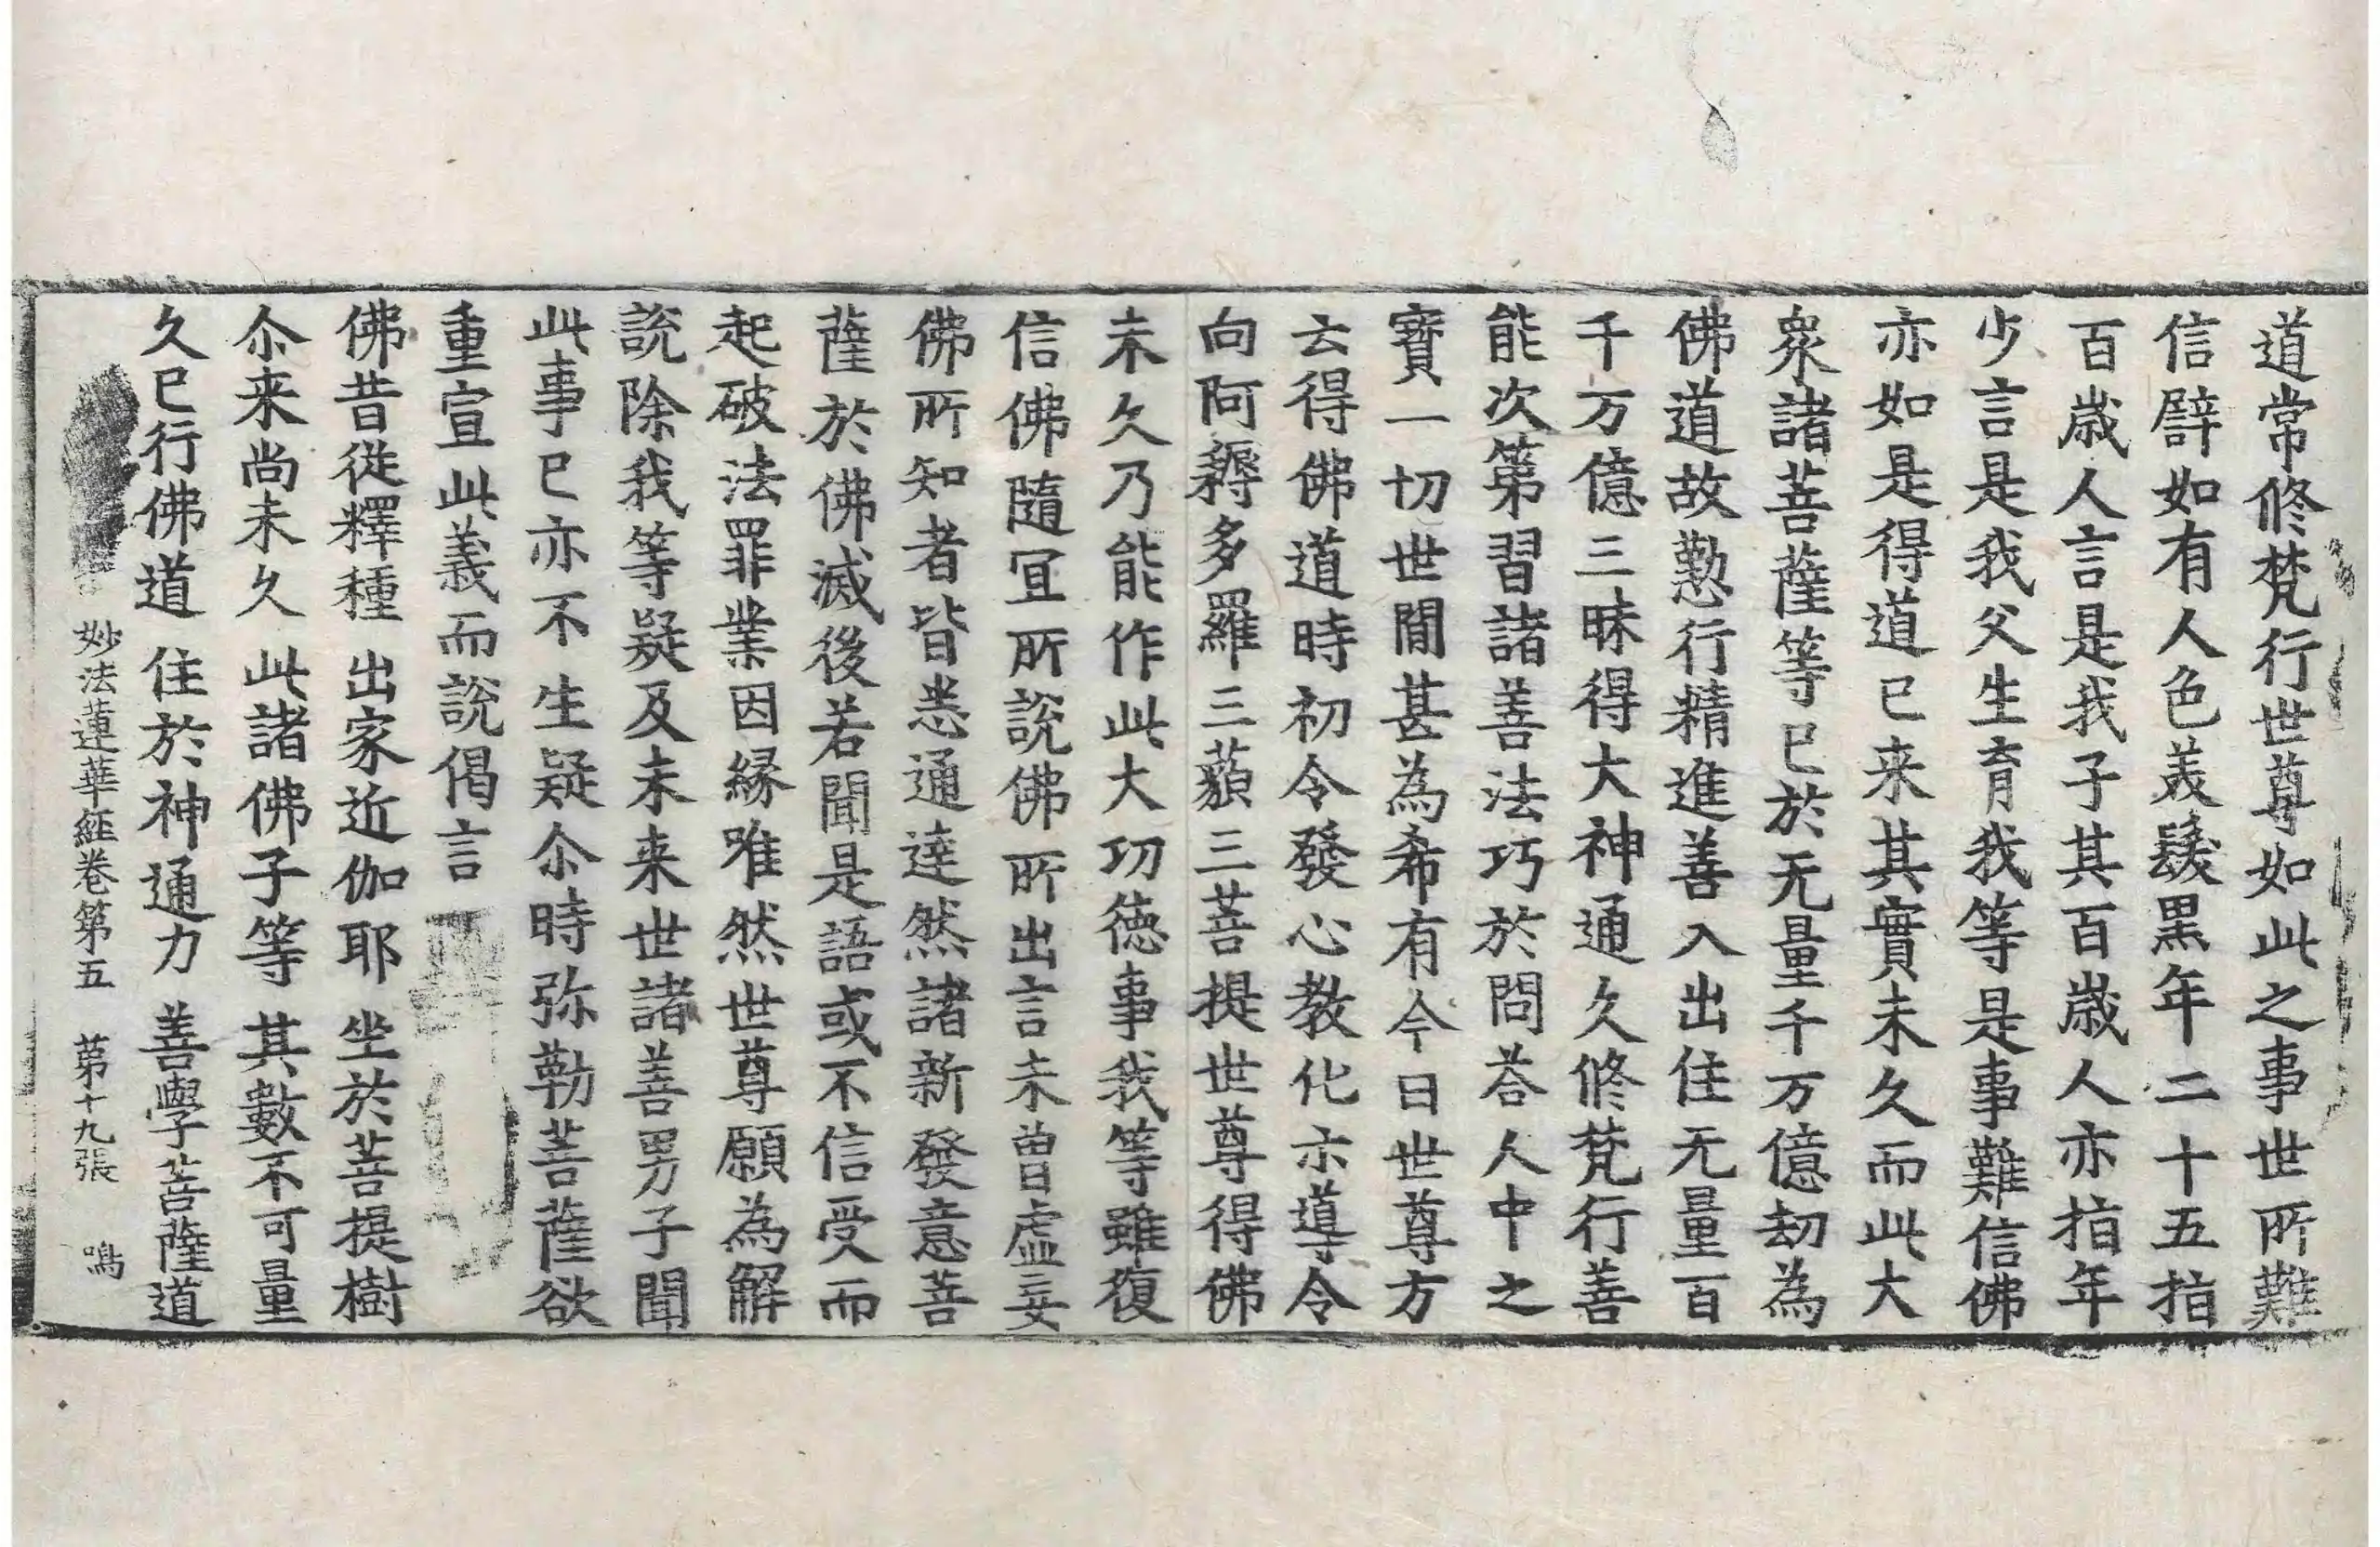 道常修梵行世尊如此之事世所難
信譬如有人色美髮黑年二十五指
百歲人言是我子其百歲人亦指年
少言是我父生育我等是事難信佛
亦如是得道已来其實未久而此大
衆諸菩薩等已於无量千万億劫為
佛道故懃行精進善入出住无量百
千万億三昧得大神通久修梵行善
能次第習諸善法巧於問荅人中之
寶一切世閒甚為希有今日世尊方
云得佛道時初令發心教化示導令
向阿耨多羅三藐三菩提世尊得佛
未久乃能作此大功德事我等雖復
信佛隨冝所說佛所出言未曾虛妄
佛所知者皆悉通達然諸新發意菩
薩於佛滅後若聞是語或不信受而
起破法罪業因緣唯然世尊願為解
說除我等疑及未来世諸善男子聞
此事已亦不生疑尒時弥勒菩薩欲
重宣此義而說偈言
佛昔從釋種　出家近伽耶　坐於菩提樹
尒来尚未久　此諸佛子等　其數不可量
久已行佛道　住於神通力　善學菩薩道
妙法蓮華經卷第五　第十九張　鳴